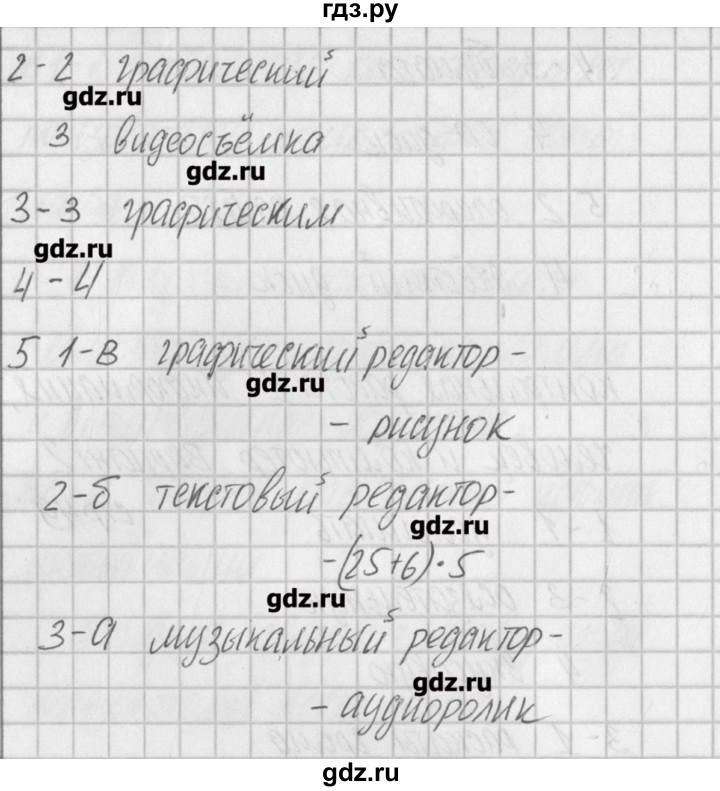 гдз.ру
2-2 графический
gdz.ru
3 видеосъёмка
gdz.ru
3-3 графическим
gdz.ru
4-4
5 1-в графический редактор -
gdz.ru
- рисунок
2-б текстовый редактор-
gdz.ru
-(25+6)·5
gdz.ru
3-а музыкальный редактор-
gdz.ru
- аудиоролик
gdz.ru